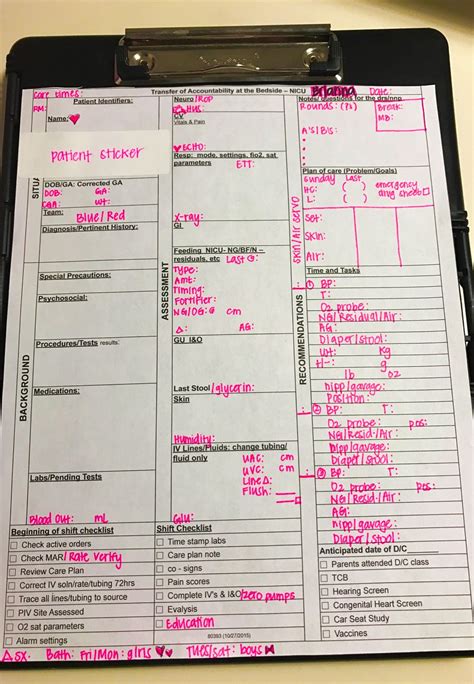 care times:
Transfer of Accountability at the Bedside – NICU
Brianna
Date:
RM:
Patient Identifiers:
Name:
patient sticker
DOB/GA: Corrected GA
DOB: GA:
CGA: WT:
Team:
Blue/Red
Diagnosis/Pertinent History:
Special Precautions:
Psychosocial:
BACKGROUND
Procedures/Tests results:
Medications:
Labs/Pending Tests
Blood Out: mL
Beginning of shift checklist
Check active orders
Check MAR/Rate Verify
Review Care Plan
Correct IV soln/rate/tubing 72hrs
Trace all lines/tubing to source
PIV Site Assessed
O2 sat parameters
Alarm settings
ASSESSMENT
Neuro/ROP
HUS:
CV
Vitals & Pain
ECHO:
Resp: mode, settings, fio2, sat
parameters
ETT:
X-ray:
GI
Feeding NICU- NG/BF/N –
residuals, etc Last G:
Type:
Amt:
Timing:
Fortifier:
NG/OG: @ cm
Δ: AG:
GU I&O
Last Stool/glycerin:
Skin
Humidity:
IV Lines/Fluids: change tubing/
fluid only
UAC: cm
UVC: cm
Line Δ:
Flush
Glu:
Shift Checklist
Time stamp labs
Care plan note
co - signs
Pain scores
Complete IV's & I&O/zero pumps
Evalysis
Education
80393 (10/27/2015)
Notes/questions for the drs/nnp
Rounds:
Break:
MB:
A's/B's:
Plan of care (Problem/Goals)
Sunday Last
HC: ( )
L: ( )
emergency
drug sheet
Skin/Air servo
Set:
Skin:
Air:
RECOMMENDATIONS
Time and Tasks
① BP:
T:
O2 probe:
NG/Residual/Air:
AG:
Diaper/stool:
Wt: kg
+/-: g
lb oz
nipp/gavage:
Position:
② BP: T:
O2 probe: pos:
NG/Resid/Air:
nipp/gavage:
Diaper/stool:
③ BP: T:
O2 probe: pos:
NG/Resid/Air:
AG:
nipp/gavage:
Diaper/Stool:
Anticipated date of D/C
Parents attended D/C class
TCB
Hearing Screen
Congenital Heart Screen
Car Seat Study
Vaccines
Δ SX. Bath: Fri/Mon: girls TUES/sat: boys